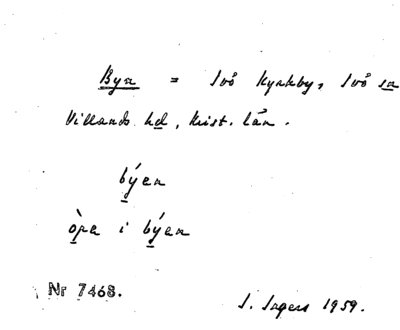 Byn = Ivö Kyrkby, Ivö sn
Villands hd, Krist. län.
býen
òpe i býen
Nr 7468.
I. Ingers 1959.